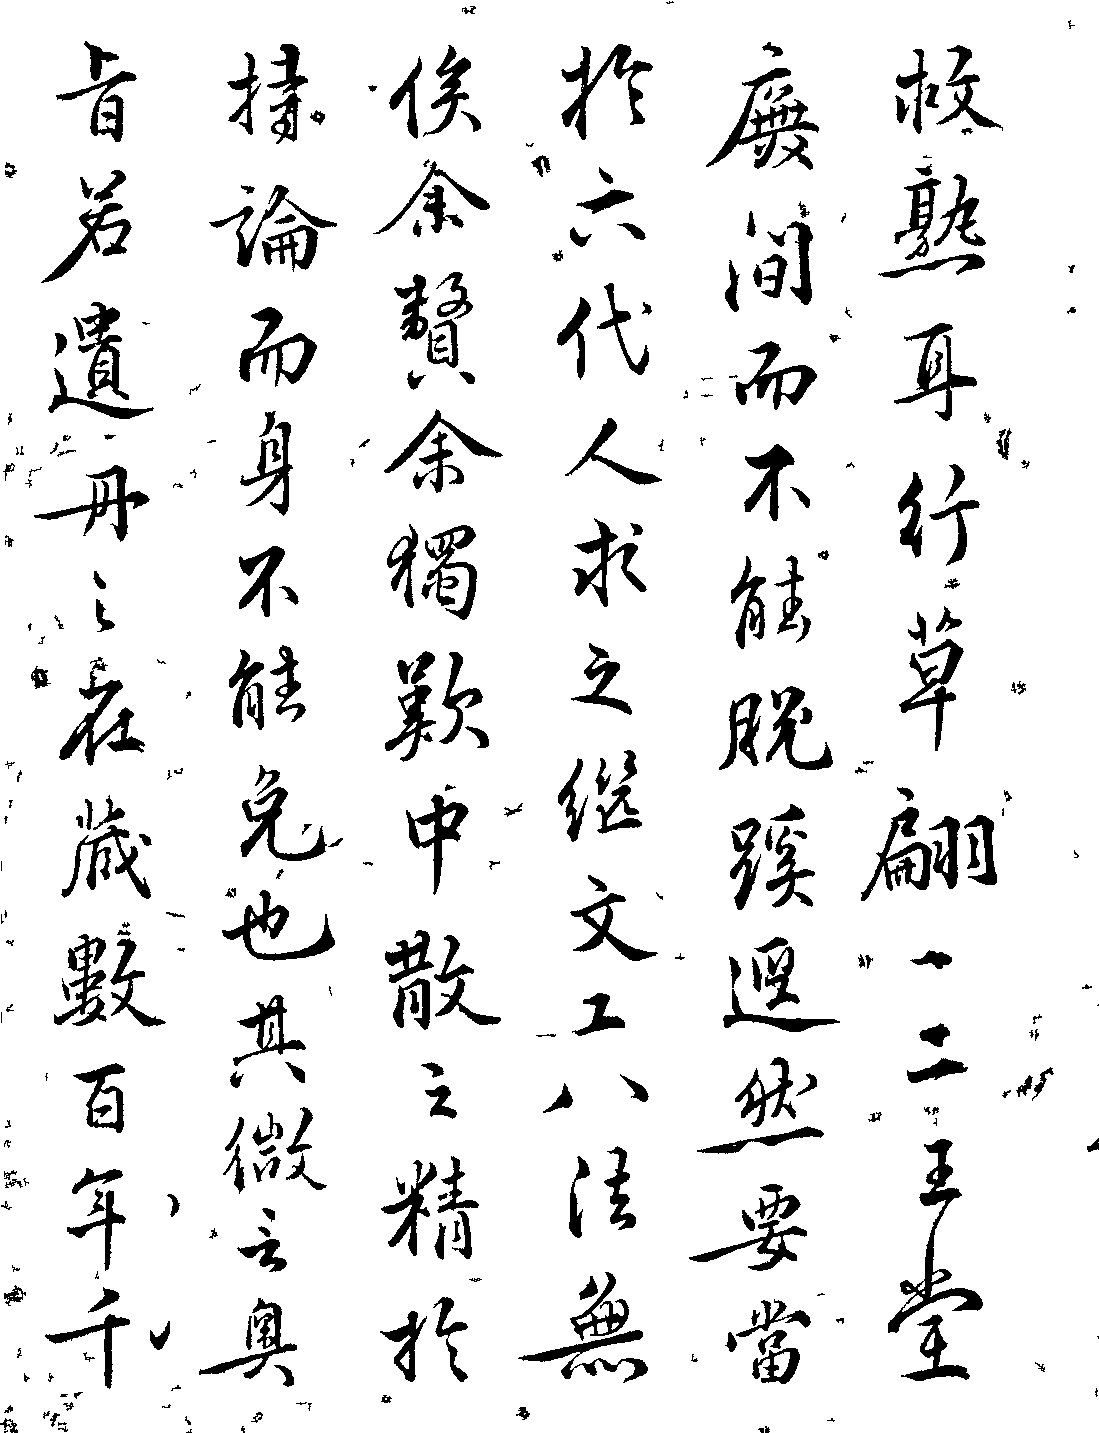 故熟耳行草翩翩二王堂
廡間而不能脫蹊逕然要當
於六代人求之繼文工八法無
俟余贅余獨歎中散之精於
持論而身不能免也其微言奧
旨若遺冊之在藏數百年千